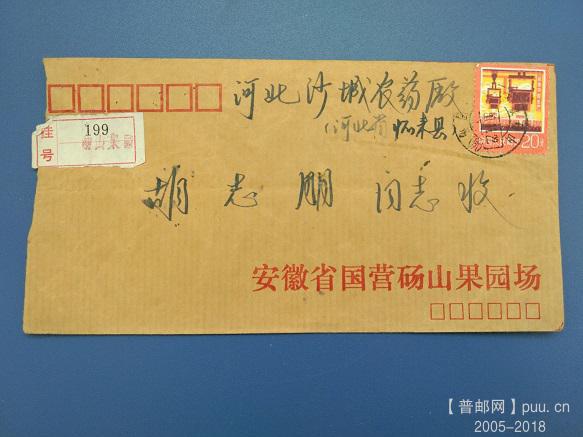 河北沙城农药厰
(河北省怀来县
20分
挂号
199
砀山果园
胡志朋同志收
安徽省国营砀山果园场
【普邮网】puu.cn
2005-2018